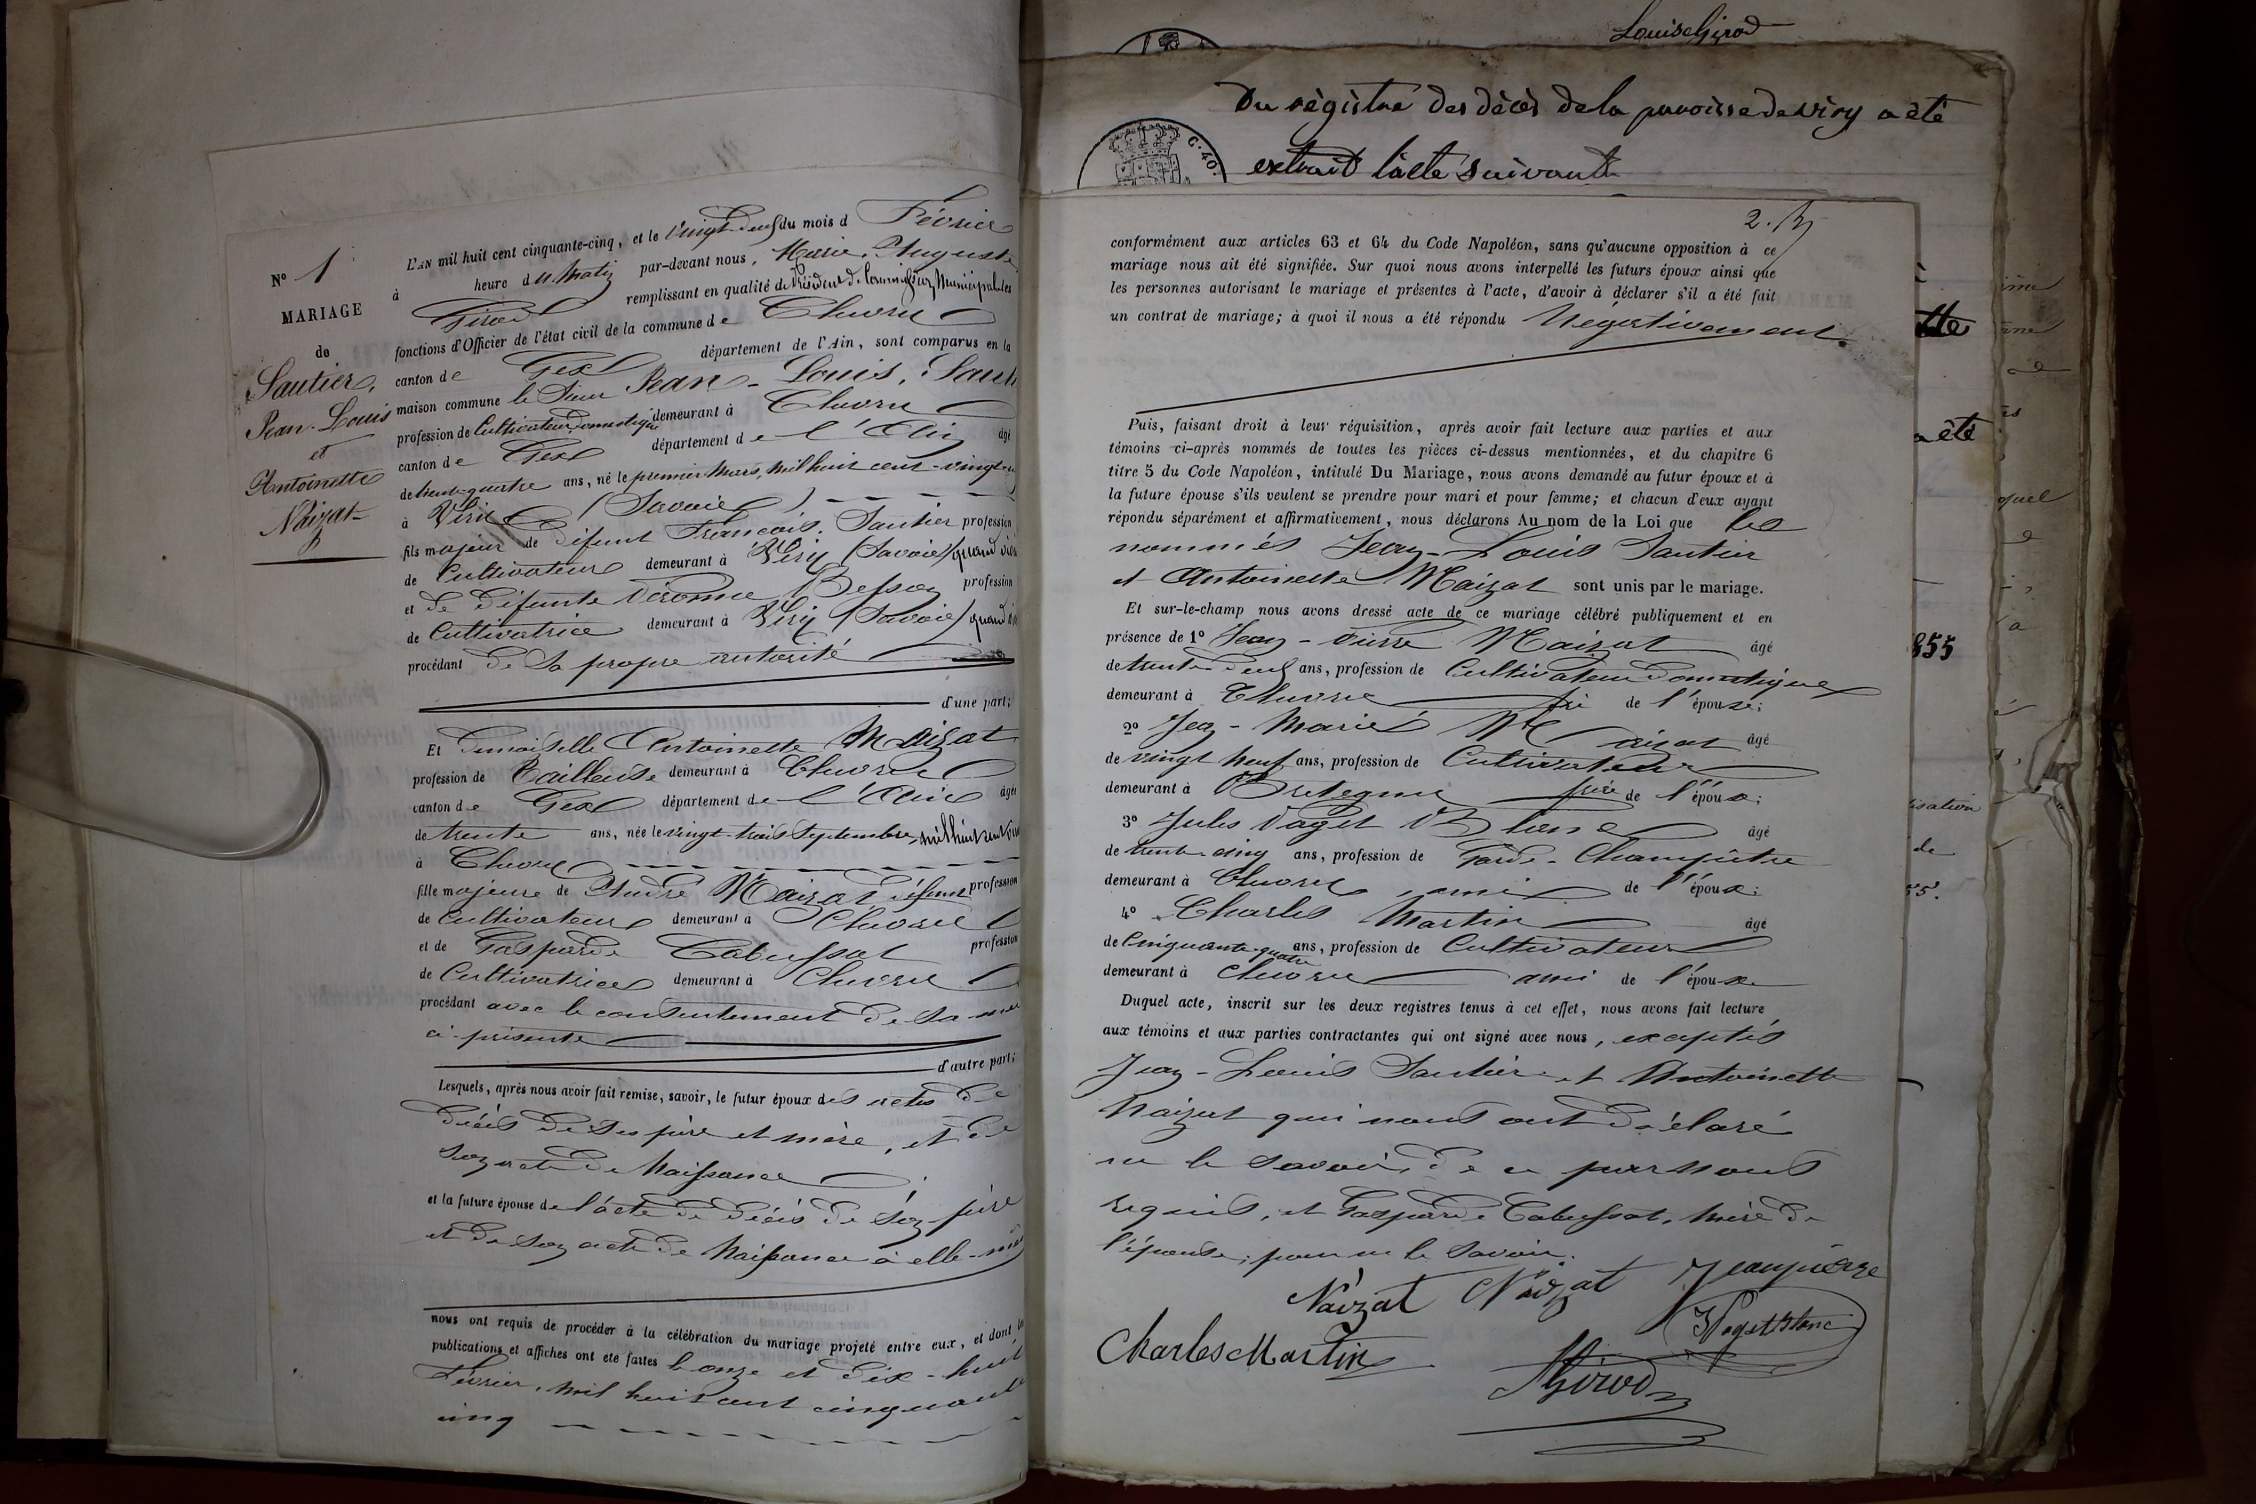 N° 1
MARIAGE
de
Sautier,
Jean-Louis
et
Antoinette
Naizat
L'AN mil huit cent cinquante-cinq, et le Vingt Deux du mois d Février
à heure du Matin par-devant nous, Marie, Auguste
Girod remplissant en qualité de Président de Commission Municipale les
fonctions d'Officier de l'état civil de la commune de Chevry
canton de Gex département de l'Ain, sont comparus en la
maison commune le Sieur Jean-Louis, Saut
profession de Cultivateur Domestique demeurant à Chevry
canton de Gex département de l'Ain âgé
de trente-quatre ans, né le premier Mars, mil huit cent-vingt-u
à Viry (Savoie)
fils majeur de Défunt François Sautier profession
de Cultivateur demeurant à Viry (Savoie) quand viv
et de Défunte Véronne Besson profession
de Cultivatrice demeurant à Viry (Savoie) quand vi
procédant De Sa propre autorité
d'une part;
Et Demoiselle Antoinette Naizat
profession de Tailleuse demeurant à Chevry
canton de Gex département de l'Ain âgée
de trente ans, née le vingt-trois Septembre, mil huit cent
à Chevry
fille majeure de André Naizat Défunt profession
de Cultivateur demeurant à Chevry
et de Gasparde Cabussat profession
de Cultivatrice demeurant à Chevry
procédant avec le consentement de sa mère
ci-présente
d'autre part;
Lesquels, après nous avoir fait remise, savoir, le futur époux des actes de
Décès de Ses père et mère, et de
Son acte de Naissance
et la future épouse de l'acte de Décès de Son père
et de Son acte de Naissance à elle-mê
nous ont requis de procéder à la célébration du mariage projeté entre eux, et dont les
publications et affiches ont été faites le onze et Dix-huit
Février, mil huit cent cinquante
cinq
Louise Girod
Du régistre des décès de la paroisse de viry a été
extrait l'acte suivant
C. 40.
2.
conformément aux articles 63 et 64 du Code Napoléon, sans qu'aucune opposition à ce
mariage nous ait été signifiée. Sur quoi nous avons interpellé les futurs époux ainsi que
les personnes autorisant le mariage et présentes à l'acte, d'avoir à déclarer s'il a été fait
un contrat de mariage; à quoi il nous a été répondu Négativement.
Puis, faisant droit à leur réquisition, après avoir fait lecture aux parties et aux
témoins ci-après nommés de toutes les pièces ci-dessus mentionnées, et du chapitre 6
titre 5 du Code Napoléon, intitulé Du Mariage, nous avons demandé au futur époux et à
la future épouse s'ils veulent se prendre pour mari et pour femme; et chacun d'eux ayant
répondu séparément et affirmativement, nous déclarons Au nom de la Loi que les
nommés Jean-Louis Sautier
et Antoinette Naizat sont unis par le mariage.
Et sur-le-champ nous avons dressé acte de ce mariage célébré publiquement et en
présence de 1° Jean-Pierre Naizat âgé
de trente-Deux ans, profession de Cultivateur Domestique
demeurant à Chevry de l'épouse;
2° Jean-Marie Naizat âgé
de vingt neuf ans, profession de Cultivateur
demeurant à frère de l'épouse;
3° Jules Paget Blanc âgé
de trente-cinq ans, profession de Garde-Champêtre
demeurant à Chevry, ami de l'époux;
4° Charles Martin âgé
de Cinquante-quatre ans, profession de Cultivateur
demeurant à Chevry ami de l'époux
Duquel acte, inscrit sur les deux registres tenus à cet effet, nous avons fait lecture
aux témoins et aux parties contractantes qui ont signé avec nous, exceptés
Jean-Louis Sautier et Antoinette
Naizat qui nous ont Déclaré
ne le savoir, de ce par nous
requis, et Gasparde Cabussat, Mère de
l'épouse, pour ne le Savoir.
Naizat Naizat Jeanpierre
Charles Martin
JPagetblanc
AGirod
été
855